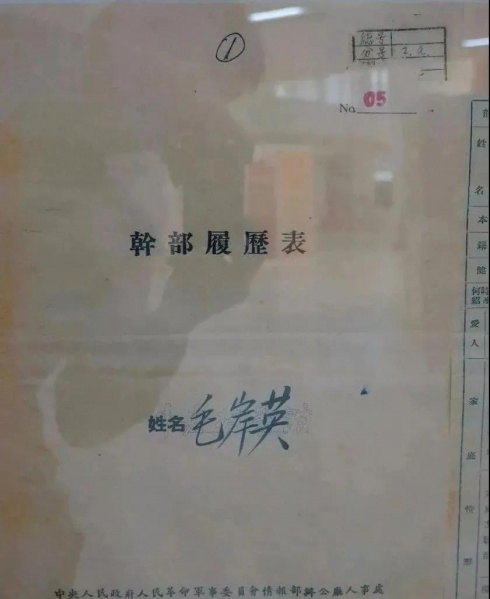 ①
編号
No. 05
幹部履歷表
姓名 毛岸英
中央人民政府人民革命軍事委員會情報部辦公廳人事處
姓
名
本
籍
愛
人
家
庭
情